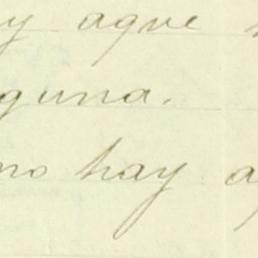 y aque
guna.
no hay a